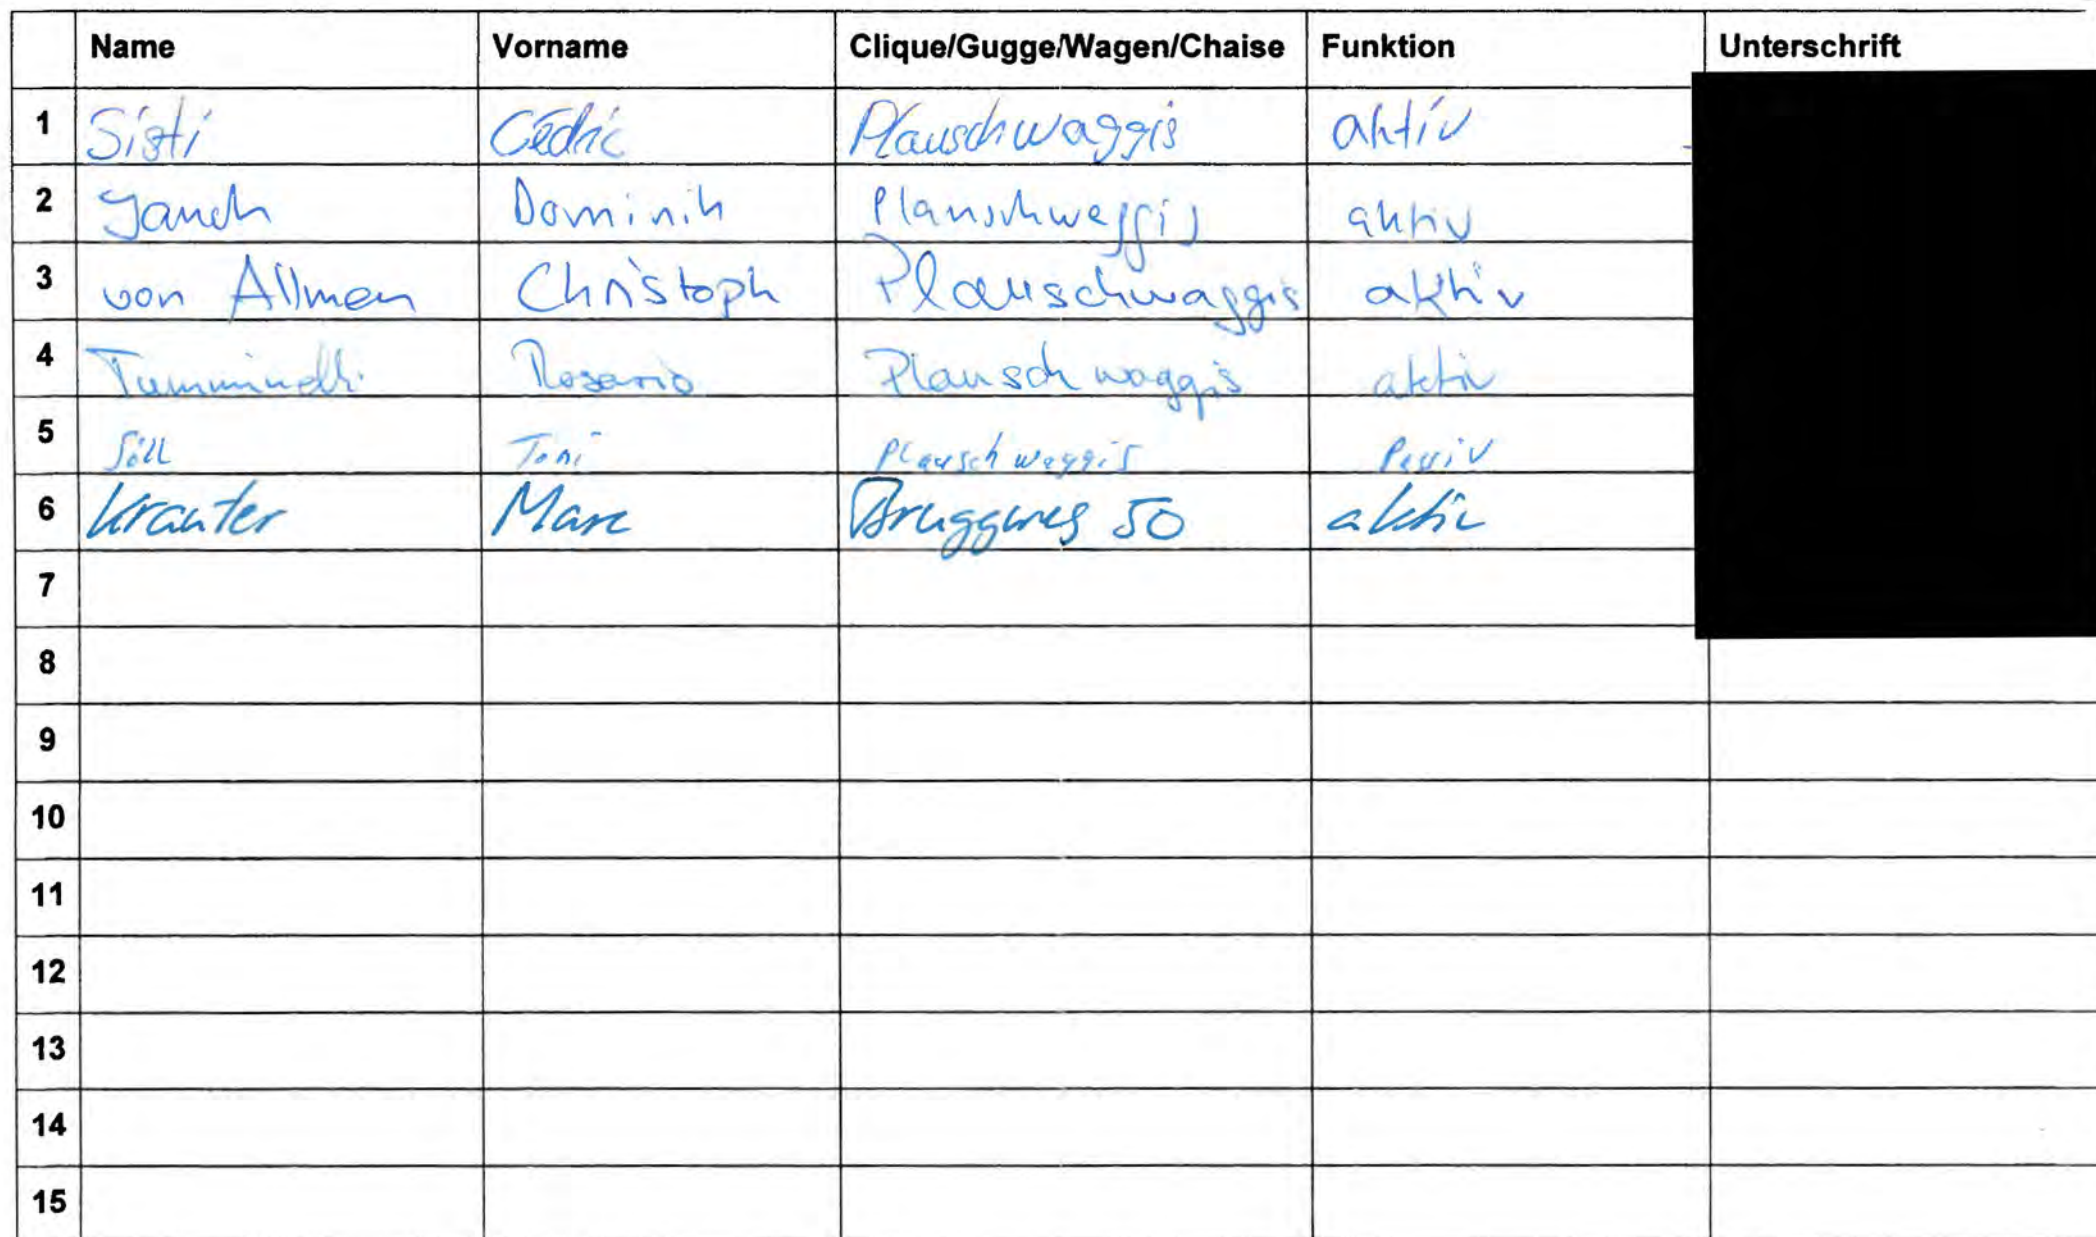 Name Vorname Clique/Gugge/Wagen/Chaise Funktion Unterschrift
1 Sisti Cédric Plauschwaggis aktiv
2 Jauch Dominik Plauschwaggis aktiv
3 von Allmen Christoph Plauschwaggis aktiv
4 Tumminelli Rosario Plauschwaggis aktiv
5 Söll Toni Plauschwaggis Passiv
6 Krauter Marc Bruggweg 50 aktiv
7
8
9
10
11
12
13
14
15